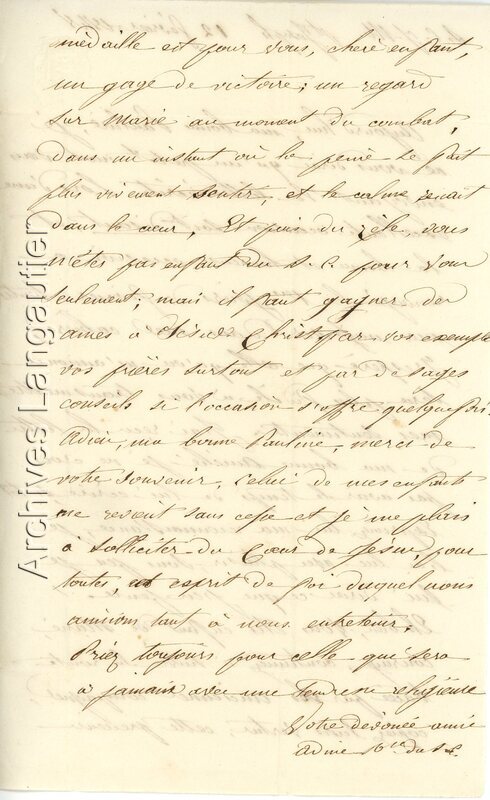 médaille est pour vous, chère enfant,
un gage de victoire; un regard
sur Marie au moment du combat,
dans un instant où la peine se fait
plus vivement sentir, et le calme renait
dans le cœur. Et puis du zèle, vous
n'êtes pas enfant du S.C. pour vous
seulement; mais il faut gagner des
ames à Jésus Christ par vos exemples
vos prières surtout et par de sages
conseils si l'occasion s'offre quelquefois.
Adieu, ma bonne Pauline, merci de
votre souvenir, celui de mes enfants
me revient sans cesse et je me plais
à solliciter du Cœur de Jésus, pour
toutes, cet esprit de foi duquel nous
aimions tant à nous entretenir.
Priez toujours pour celle qui sera
à jamais avec une tendresse religieuse
Votre dévouée amie
du S.C.
Archives Langautier